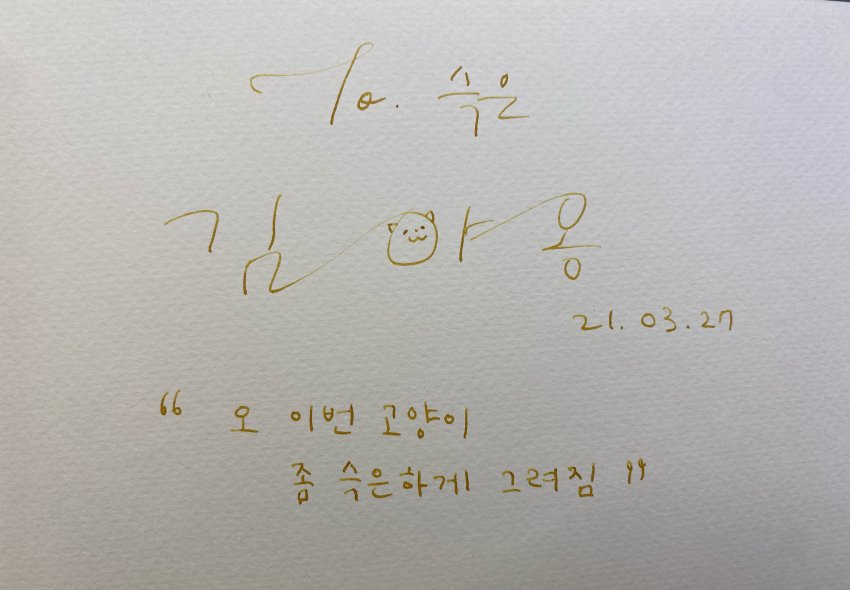 To. 슥은
김 야 옹
21.03.27
“ 오 이번 고양이
좀 슥은하게 그려짐 ”